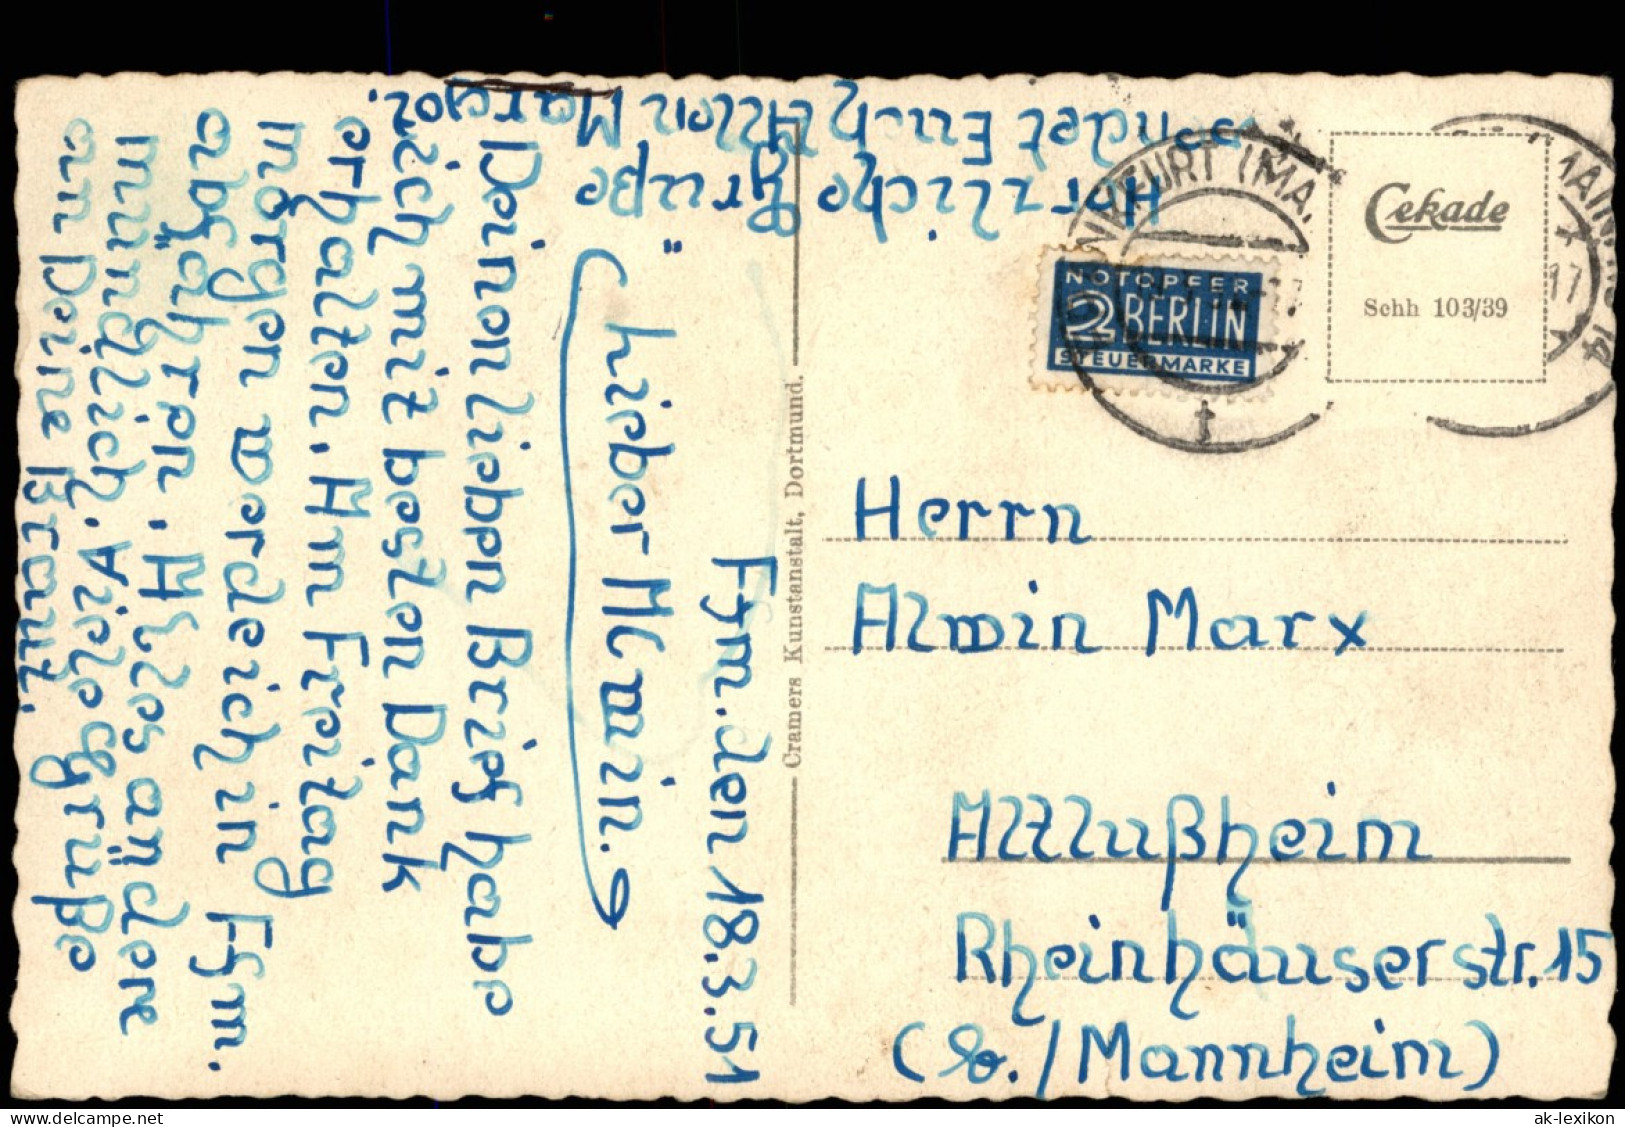 Ffm. den 18.3.51
Lieber Alwin.
Deinen lieben Brief habe
ich mit besten Dank
erhalten. Am Freitag
morgen werde ich in Ffm.
abfahren. Alles andere
mündlich. Viele Grüße
an Deine Braut.
Herzliche Grüße
sendet Euch Allen Margot.
Cramers Kunstanstalt, Dortmund.
FRANKFURT (MA
17
NOTOPFER
2 BERLIN
STEUERMARKE
Cekade
Schh 103/39
MAIN
17
14
Herrn
Alwin Marx
Altlußheim
Rheinhäuserstr. 15
(b./Mannheim)
www.delcampe.net
ak-lexikon